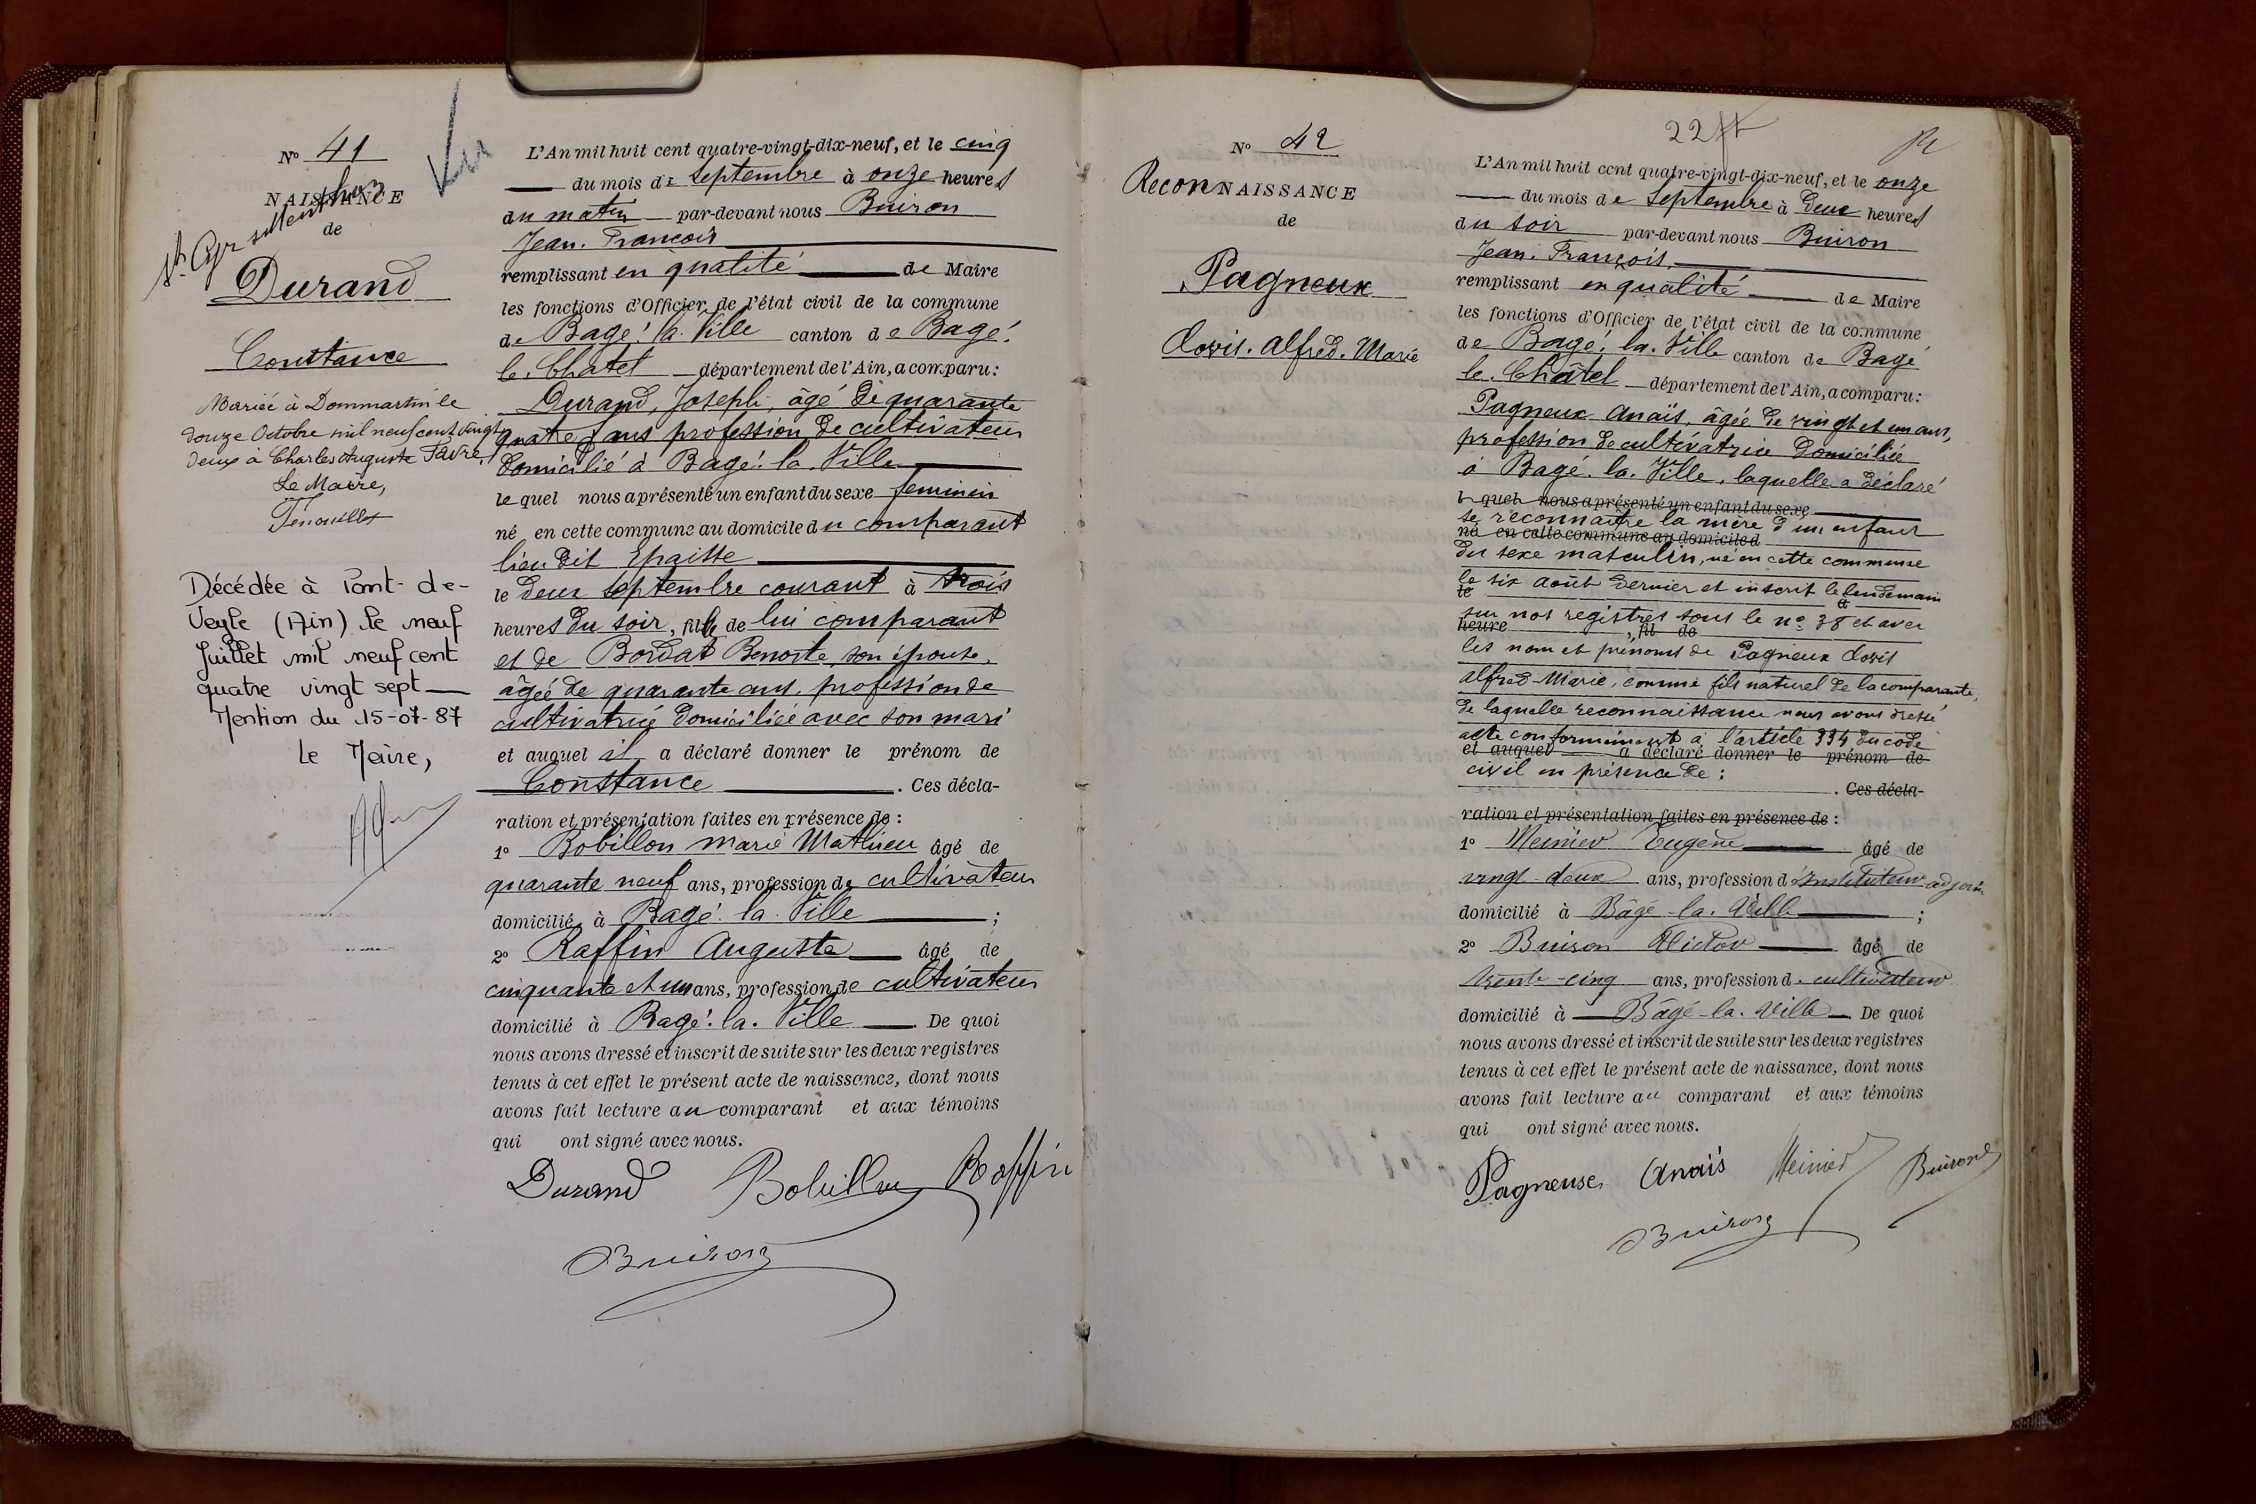 N° 41
NAISSANCE
de
St Cyr s/Menthon
Durand
Constance
Mariée à Dommartin le
douze Octobre mil neuf cent vingt
deux à Charles Auguste Favre.
Le Maire,
Décédée à Pont-de-
Veyle (Ain) le neuf
Juillet mil neuf cent
quatre vingt sept
Mention du 15-07-87
Le Maire,
Vu
L'An mil huit cent quatre-vingt-dix-neuf, et le cinq
du mois de Septembre à onze heures
du matin par-devant nous Buiron
Jean. François
remplissant en qualité de Maire
les fonctions d'Officier de l'état civil de la commune
de Bagé. la. Ville canton de Bagé.
le. Chatel département de l'Ain, a comparu:
Durand, Joseph, âgé de quarante
quatre ans profession de cultivateur
domicilié à Bagé. la. Ville
le quel nous a présenté un enfant du sexe feminin
né en cette commune au domicile du comparant
lieu dit Epaisse
le deux Septembre courant à trois
heures du soir, fille de lui comparant
et de Bordat Benoite, son épouse,
âgée de quarante ans, profession de
cultivatrice domiciliée avec son mari
et auquel il a déclaré donner le prénom de
Constance . Ces décla-
ration et présentation faites en présence de :
1° Bobillon Marie Mathieu âgé de
quarante neuf ans, profession de cultivateur
domicilié à Bagé. la. Ville ;
2° Raffin Auguste âgé de
cinquante et un ans, profession de cultivateur
domicilié à Bagé. la. Ville De quoi
nous avons dressé et inscrit de suite sur les deux registres
tenus à cet effet le présent acte de naissance, dont nous
avons fait lecture au comparant et aux témoins
qui ont signé avec nous.
Durand Bobillon Raffin
Buiron
N° 42
ReconNAISSANCE
de
Pagneux
Clovis. Alfred. Marie
L'An mil huit cent quatre-vingt-dix-neuf, et le onze
du mois de Septembre à deux heures
du soir par-devant nous Buiron
Jean. François.
remplissant en qualité de Maire
les fonctions d'Officier de l'état civil de la commune
de Bagé. la. Ville canton de Bagé
le. Châtel département de l'Ain, a comparu:
Pagneux Anaïs, âgée de vingt et un ans,
profession de cultivatrice domiciliée
à Bagé. la. Ville, laquelle a déclaré
l quel nous a présenté un enfant du sexe
se reconnaître la mère d'un enfant
né en cette commune au domicile d
du sexe masculin, né en cette commune
le six août dernier et inscrit le lendemain
le à
sur nos registres sous le n° 38 et avec
heure , fil de
les nom et prénoms de Pagneux Clovis
Alfred-Marie, comme fils naturel de la comparante,
de laquelle reconnaissance nous avons dressé
acte conformément à l'article 334 du code
et auquel a déclaré donner le prénom de
civil en présence de :
. Ces décla-
ration et présentation faites en présence de :
1° Meinier Eugène âgé de
vingt-deux ans, profession d'instituteur adjoint
domicilié à Bâgé-la. Ville ;
2° Buiron Victor âgé de
trente-cinq ans, profession de cultivateur
domicilié à Bâgé-la. Ville De quoi
nous avons dressé et inscrit de suite sur les deux registres
tenus à cet effet le présent acte de naissance, dont nous
avons fait lecture au comparant et aux témoins
qui ont signé avec nous.
Pagneux Anaïs Meinier Buiron
Buiron